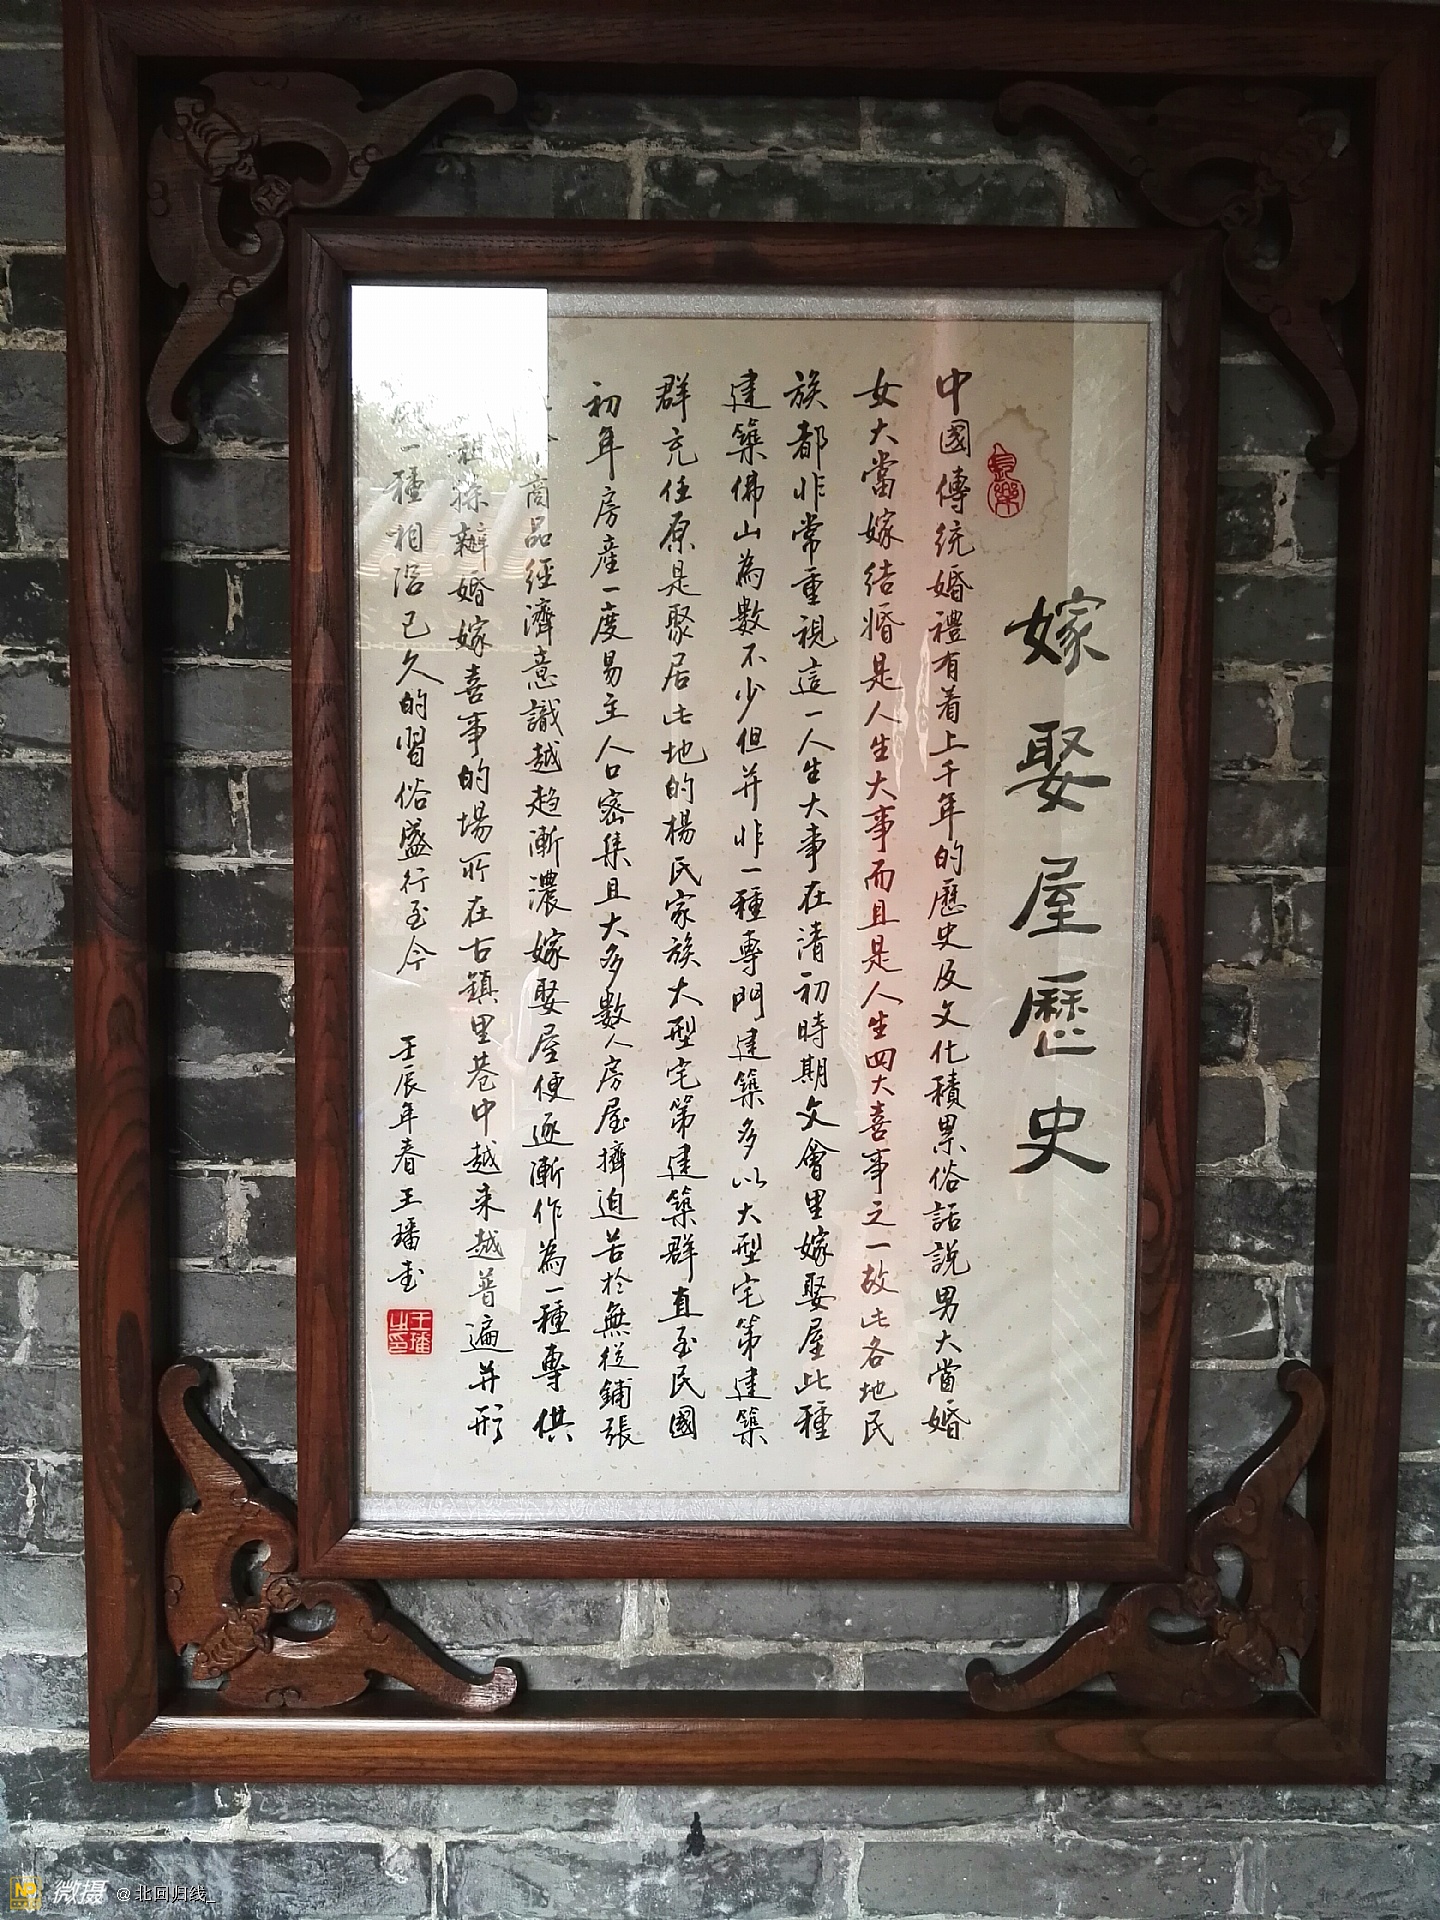 嫁娶屋歷史
長樂
中國傳統婚禮有着上千年的歷史及文化積累俗話説男大當婚
女大當嫁結婚是人生大事而且是人生四大喜事之一故此各地民
族都非常重視這一人生大事在清初時期文會里嫁娶屋此種
建築佛山為數不少但并非一種專門建築多以大型宅第建築
群充任原是聚居此地的楊氏家族大型宅第建築群直至民國
初年房產一度易主人口密集且大多數人房屋擠迫苦於無從鋪張
商品經濟意識越趋漸濃嫁娶屋便逐漸作為一種專供
辦婚嫁喜事的場所在古鎮里巷中越来越普遍并形
一種相沿已久的習俗盛行至今
壬辰年春王璠書
王璠之印
微摄 @北回归线_